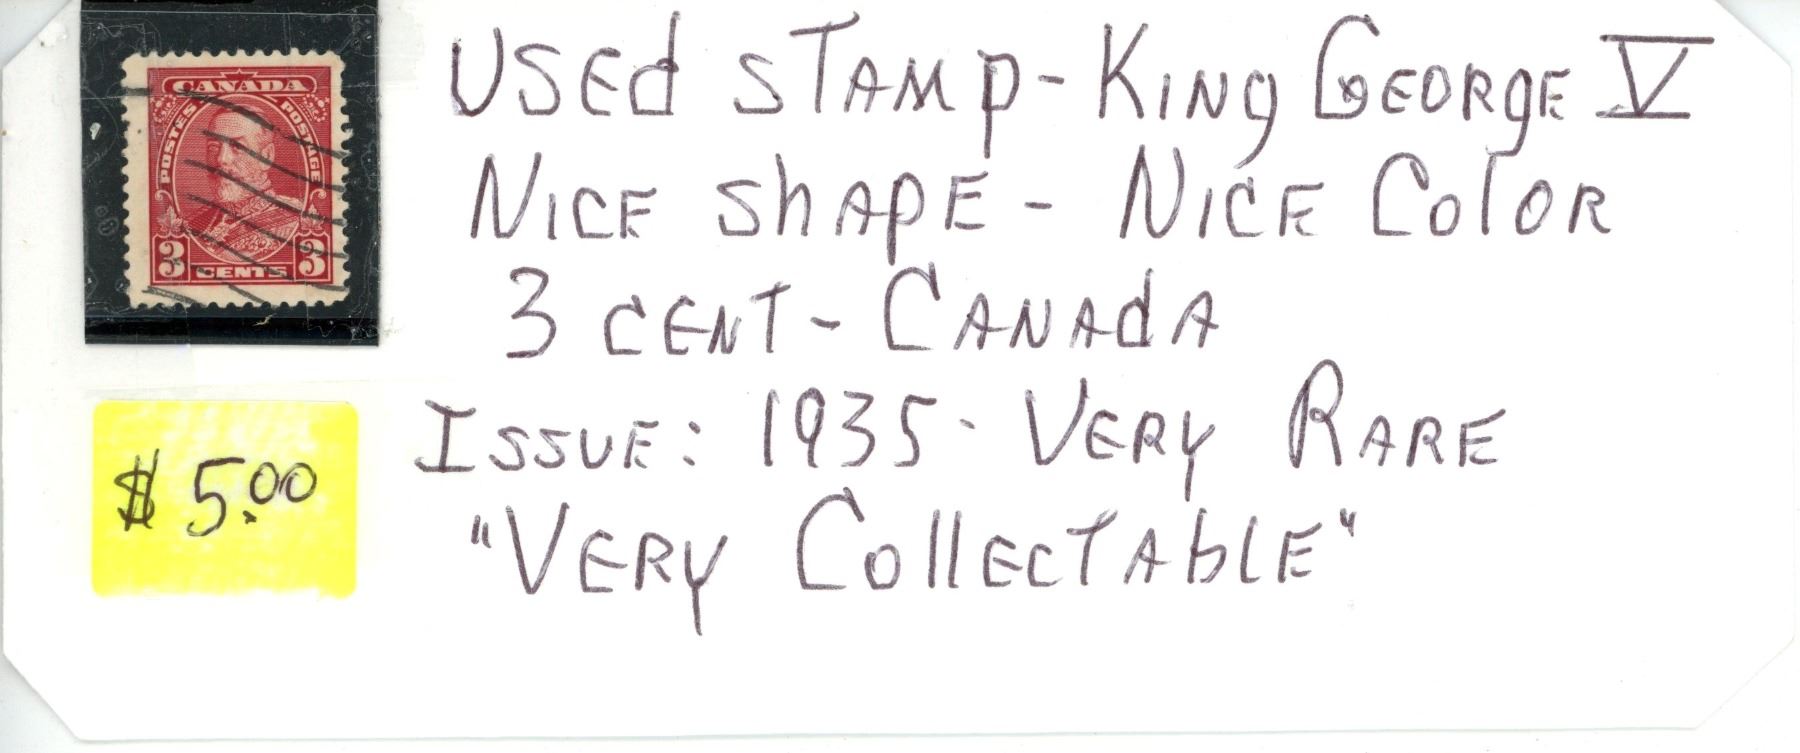 CANADA
POSTES POSTAGE
3 CENTS 3
USEd STAMP - KING GEORGE V
NICE ShAPE - NICE COlOR
3 CENT - CANAdA
ISSUE: 1935 - VERY RARE
"VERY COllECTAblE"
$ 5.00